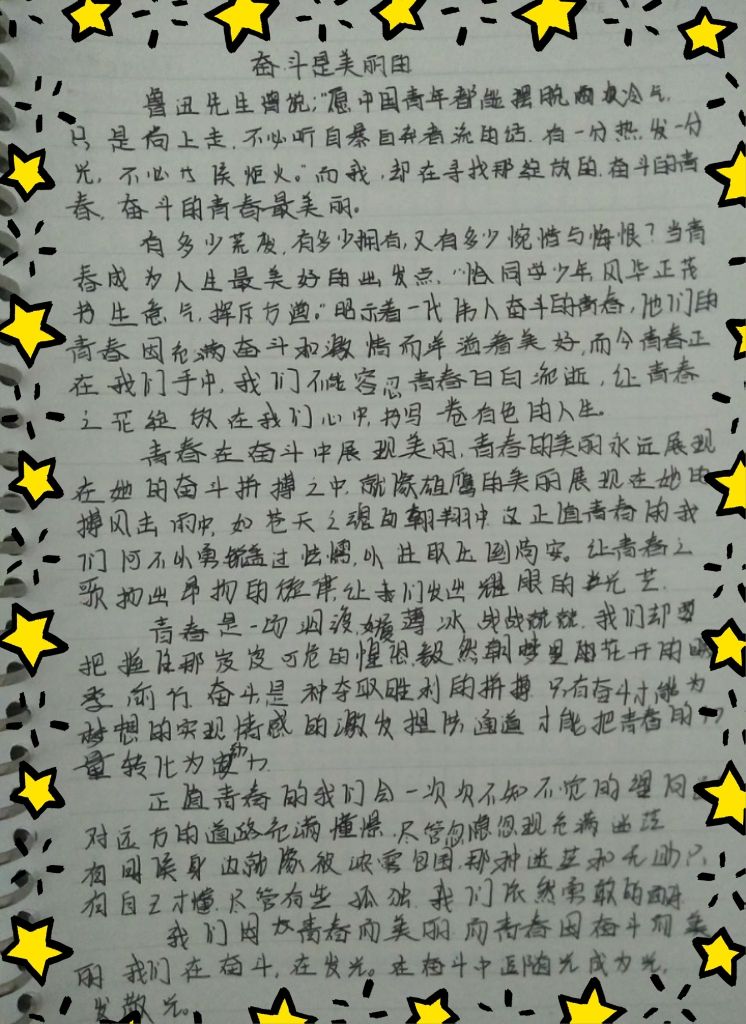 奋斗是美丽的
鲁迅先生曾说:"愿中国青年都能摆脱冷气,
只是向上走,不必听自暴自弃者流的话.有一分热,发一分
光,不必等候炬火。"而我,却在寻找那绽放的,奋斗的青
春,奋斗的青春最美丽。
有多少荒废,有多少拥有,又有多少惋惜与悔恨?当青
春成为人生最美好的出发点,"恰同学少年,风华正茂
书生意气,挥斥方遒。"昭示着一代伟人奋斗的青春,他们的
青春因充满奋斗和激情而洋溢着美好,而今青春正
在我们手中,我们不能容忍青春白白流逝,让青春
之花绽放在我们心中,书写一卷有色的人生。
青春在奋斗中展现美丽,青春的美丽永远展现
在她的奋斗拼搏之中,就像雄鹰的美丽展现在她的
搏风击雨中,如苍天之魂的翱翔中,正值青春的我
们何不以勇锐盖过怯懦,以进取压倒苟安。让青春之
歌扬出昂扬的旋律,让我们发出耀眼的光芒.
青春是一场薄冰,战战兢兢.我们却要
把握住那岌岌可危的惶恐,毅然朝梦里的花开的
季前行.奋斗是种夺取胜利的拼搏.只有奋斗才能为
梦想的实现情感的激发提供通道才能把青春的
量转化为动力.
正值青春的我们会一次次不知不觉的
对远方的道路充满憧憬.尽管忽隐忽现充满迷茫
有时候身边就像被浓雾包围,那种迷茫和无助只
有自己才懂.尽管有些孤独.我们依然勇敢的
我们因为青春而美丽.而青春因奋斗而美
丽.我们在奋斗,在发光。在奋斗中追随光成为光,
发散光。